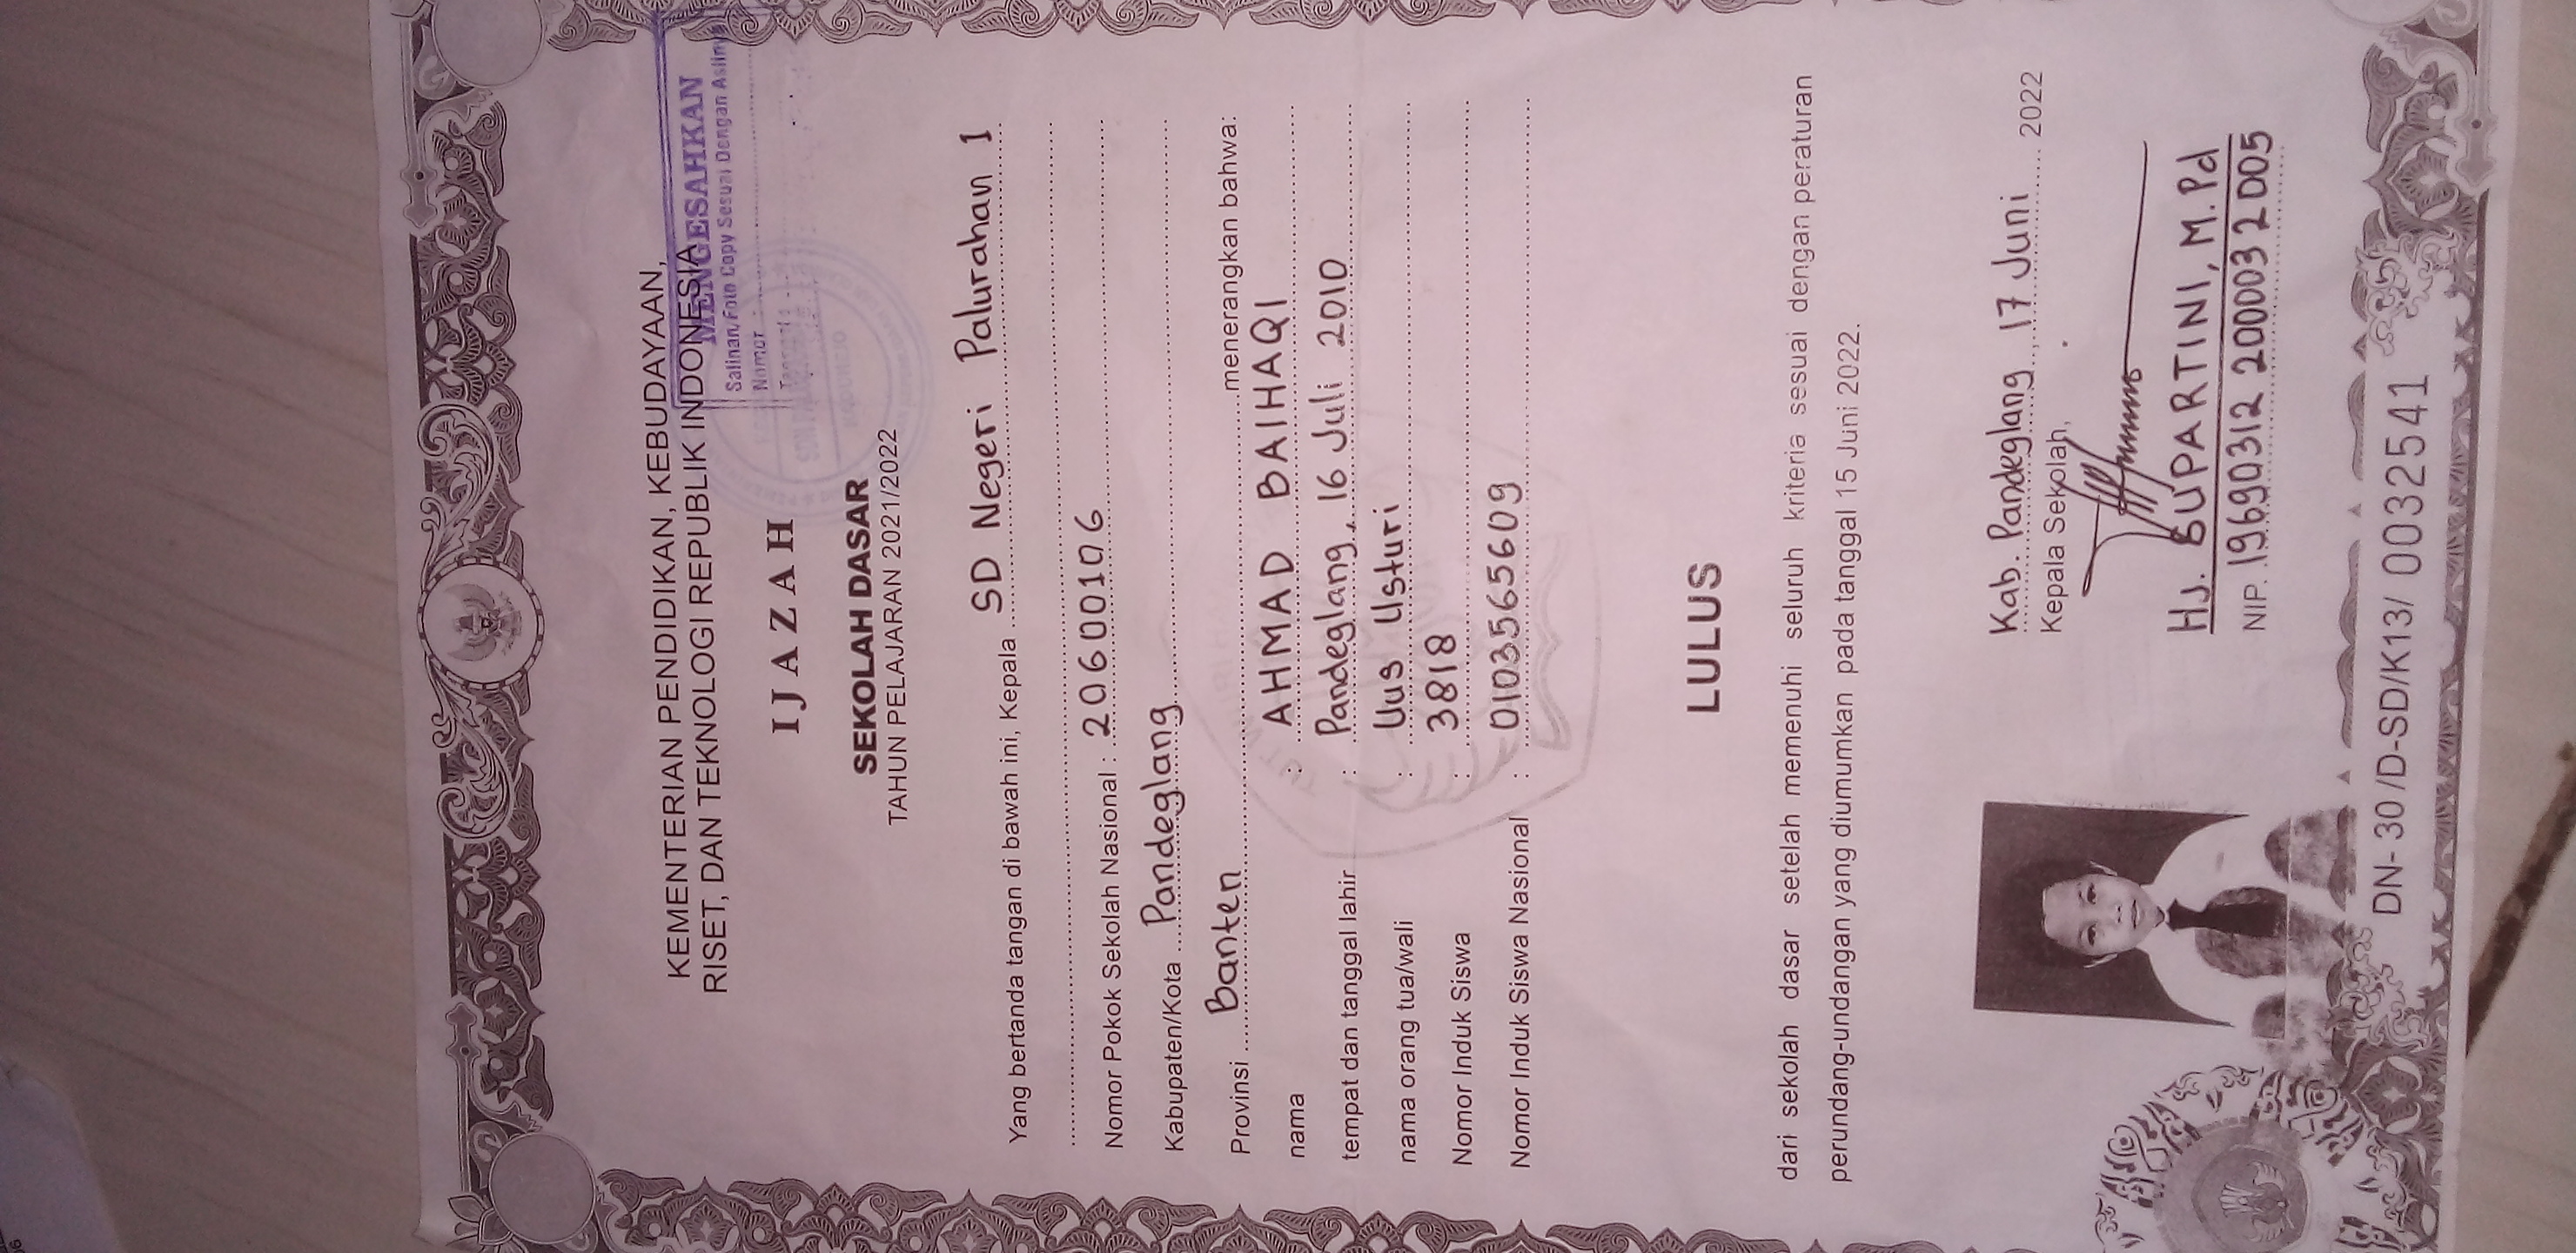 06
KEMENTERIAN PENDIDIKAN, KEBUDAYAAN,
RISET, DAN TEKNOLOGI REPUBLIK INDONESIA
MENGESAHKAN
Salinan/Foto Copy Sesuai Dengan Aslinya
Nomor :
Tanggal :
IJAZAH
SEKOLAH DASAR
TAHUN PELAJARAN 2021/2022
Yang bertanda tangan di bawah ini, Kepala SD Negeri Palurahan 1
Nomor Pokok Sekolah Nasional : 20600106
Kabupaten/Kota Pandeglang
Provinsi Banten menerangkan bahwa:
nama : AHMAD BAIHAQI
tempat dan tanggal lahir : Pandeglang, 16 Juli 2010
nama orang tua/wali : Uus Usturi
Nomor Induk Siswa : 3818
Nomor Induk Siswa Nasional : 0103565609
LULUS
dari sekolah dasar setelah memenuhi seluruh kriteria sesuai dengan peraturan
perundang-undangan yang diumumkan pada tanggal 15 Juni 2022.
Kab. Pandeglang, 17 Juni 2022
Kepala Sekolah,
Hj. SUPARTINI, M.Pd
NIP. 19690312 200003 2 005
DN- 30 /D-SD/K13/ 0032541